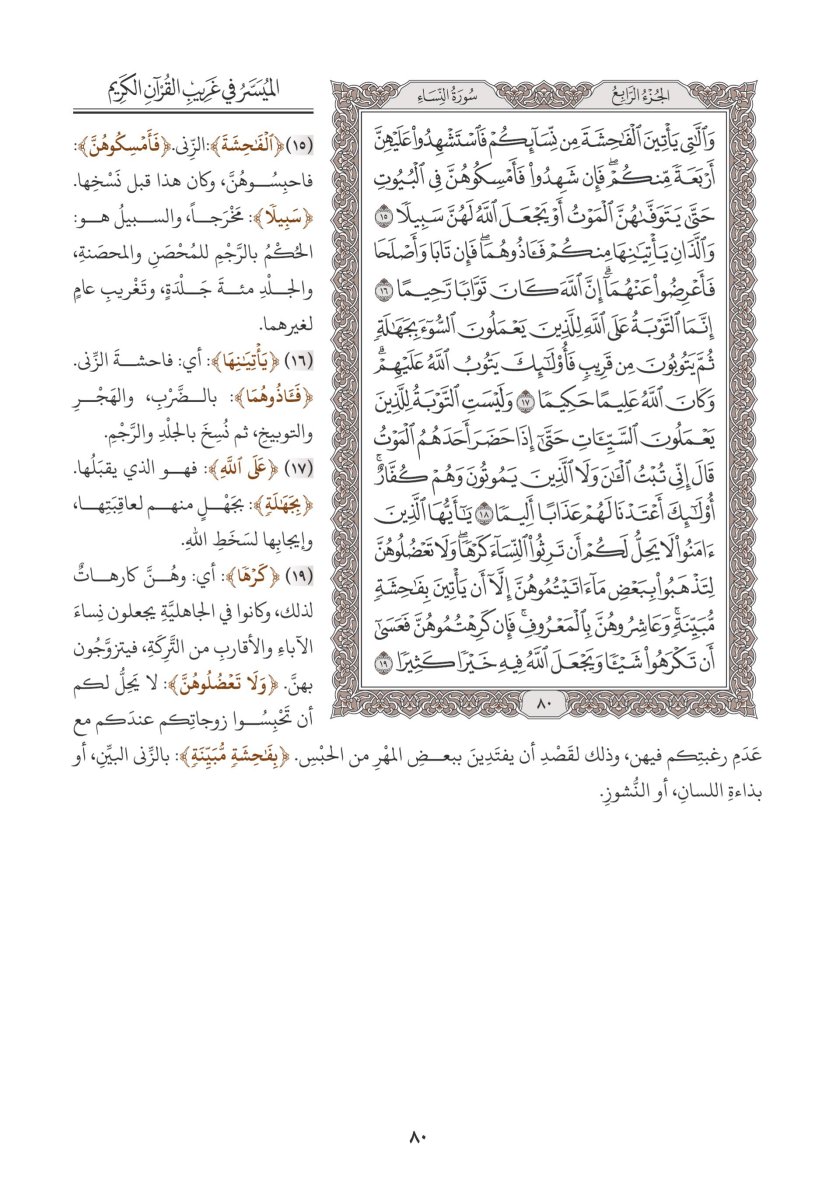 الجُزْءُ الرَّابِعُ
سُورَةُ النِّسَاءِ
وَٱلَّٰتِي يَأۡتِينَ ٱلۡفَٰحِشَةَ مِن نِّسَآئِكُمۡ فَٱسۡتَشۡهِدُواْ عَلَيۡهِنَّ
أَرۡبَعَةٗ مِّنكُمۡۖ فَإِن شَهِدُواْ فَأَمۡسِكُوهُنَّ فِي ٱلۡبُيُوتِ
حَتَّىٰ يَتَوَفَّىٰهُنَّ ٱلۡمَوۡتُ أَوۡ يَجۡعَلَ ٱللَّهُ لَهُنَّ سَبِيلٗا ١٥
وَٱلَّذَانِ يَأۡتِيَٰنِهَا مِنكُمۡ فَـَٔاذُوهُمَاۖ فَإِن تَابَا وَأَصۡلَحَا
فَأَعۡرِضُواْ عَنۡهُمَآۗ إِنَّ ٱللَّهَ كَانَ تَوَّابٗا رَّحِيمًا ١٦
إِنَّمَا ٱلتَّوۡبَةُ عَلَى ٱللَّهِ لِلَّذِينَ يَعۡمَلُونَ ٱلسُّوٓءَ بِجَهَٰلَةٖ
ثُمَّ يَتُوبُونَ مِن قَرِيبٖ فَأُوْلَٰٓئِكَ يَتُوبُ ٱللَّهُ عَلَيۡهِمۡۗ
وَكَانَ ٱللَّهُ عَلِيمًا حَكِيمٗا ١٧ وَلَيۡسَتِ ٱلتَّوۡبَةُ لِلَّذِينَ
يَعۡمَلُونَ ٱلسَّيِّـَٔاتِ حَتَّىٰٓ إِذَا حَضَرَ أَحَدَهُمُ ٱلۡمَوۡتُ
قَالَ إِنِّي تُبۡتُ ٱلۡـَٰٔنَ وَلَا ٱلَّذِينَ يَمُوتُونَ وَهُمۡ كُفَّارٌۚ
أُوْلَٰٓئِكَ أَعۡتَدۡنَا لَهُمۡ عَذَابًا أَلِيمٗا ١٨ يَٰٓأَيُّهَا ٱلَّذِينَ
ءَامَنُواْ لَا يَحِلُّ لَكُمۡ أَن تَرِثُواْ ٱلنِّسَآءَ كَرۡهٗاۖ وَلَا تَعۡضُلُوهُنَّ
لِتَذۡهَبُواْ بِبَعۡضِ مَآ ءَاتَيۡتُمُوهُنَّ إِلَّآ أَن يَأۡتِينَ بِفَٰحِشَةٖ
مُّبَيِّنَةٖۚ وَعَاشِرُوهُنَّ بِٱلۡمَعۡرُوفِۚ فَإِن كَرِهۡتُمُوهُنَّ فَعَسَىٰٓ
أَن تَكۡرَهُواْ شَيۡـٔٗا وَيَجۡعَلَ ٱللَّهُ فِيهِ خَيۡرٗا كَثِيرٗا ١٩
٨٠
المُيَسَّرُ في غَرِيبِ القُرْآنِ الكَرِيمِ
(١٥) ﴿ٱلۡفَٰحِشَةَ﴾: الزِّنى. ﴿فَأَمۡسِكُوهُنَّ﴾:
فاحبِسُوهُنَّ، وكان هذا قبل نَسْخِها.
﴿سَبِيلٗا﴾: مَخْرَجاً، والسبيلُ هو:
الحُكْمُ بالرَّجْمِ للمُحْصَنِ والمحصَنةِ،
والجلْدِ مئةَ جَلْدَةٍ، وتَغْريبِ عامٍ
لغيرهما.
(١٦) ﴿يَأۡتِيَٰنِهَا﴾: أي: فاحشةَ الزِّنى.
﴿فَـَٔاذُوهُمَا﴾: بالضَّرْبِ، والهَجْرِ
والتوبيخِ، ثم نُسِخَ بالجلْدِ والرَّجْمِ.
(١٧) ﴿عَلَى ٱللَّهِ﴾: فهو الذي يقبَلُها.
﴿بِجَهَٰلَةٖ﴾: بجَهْلٍ منهم لعاقِبَتِها،
وإيجابِها لسَخَطِ اللهِ.
(١٩) ﴿كَرۡهٗا﴾: أي: وهُنَّ كارهاتٌ
لذلك، وكانوا في الجاهليَّةِ يجعلون نِساءَ
الآباءِ والأقاربِ من التَّرِكَةِ، فيتزوَّجُون
بهنَّ. ﴿وَلَا تَعۡضُلُوهُنَّ﴾: لا يَحِلُّ لكم
أن تَحْبِسُوا زوجاتِكم عندَكم مع
عَدَمِ رغبتِكم فيهن، وذلك لقَصْدِ أن يفتَدِينَ ببعضِ المهْرِ من الحبْسِ. ﴿بِفَٰحِشَةٖ مُّبَيِّنَةٖ﴾: بالزِّنى البيِّنِ، أو
بذاءةِ اللسانِ، أو النُّشوزِ.
٨٠